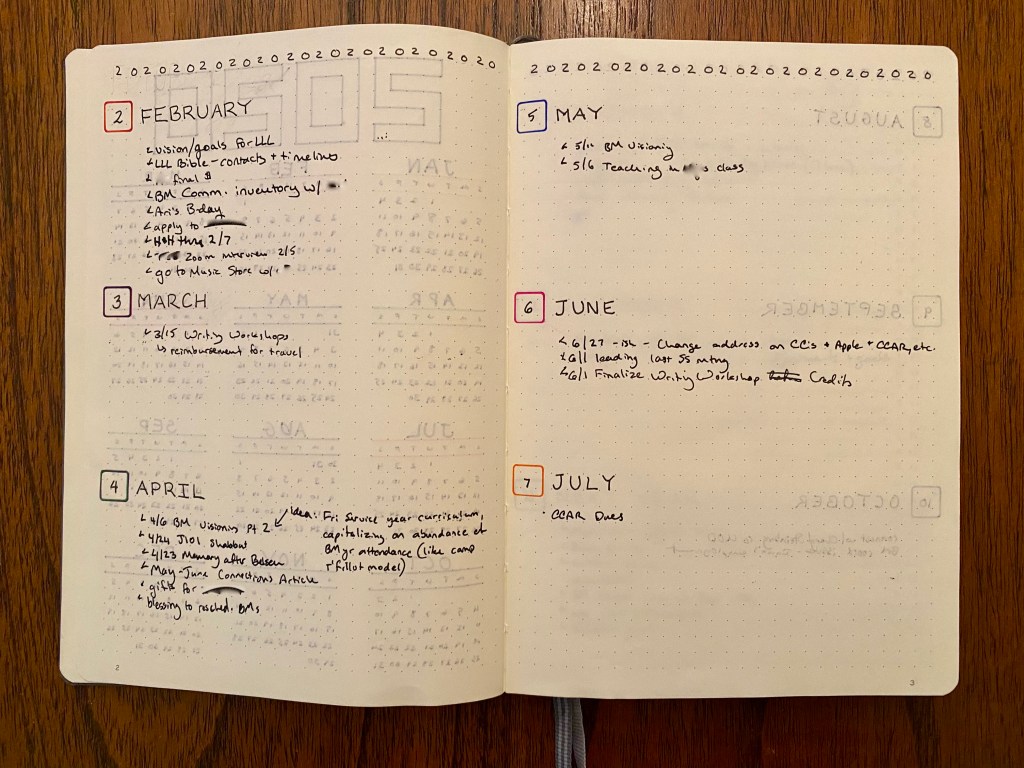 2020202020202020202020202020
2 FEBRUARY
vision/goals for LLL
LLL Bible - contacts + timelines
final $
BM Comm. inventory w/
Ari's B-day
apply to
thru 2/7
Zoom 2/5
go to Music Store w/
3 MARCH
3/15 Writing Workshops
↳ reimbursement for travel
4 APRIL
4/6 BM Visioning Pt 2
4/24 J101 Shabbat
4/23 Memory after Belsen
May-June Connections Article
gifts for
blessing to resched. BMs
Idea: Fri Service year curriculum,
capitalizing on abundance of
BM yr attendance (like camp
t'fillot model)
2
2020202020202020202020202020
5 MAY
5/11 BM Visioning
5/6 Teaching in class
6 JUNE
6/27 -ish - Change address on CC's + Apple + CCAR, etc.
6/1 leading last SS mtng
6/1 Finalize Writing Workshop Credits
7 JULY
CCAR Dues
3